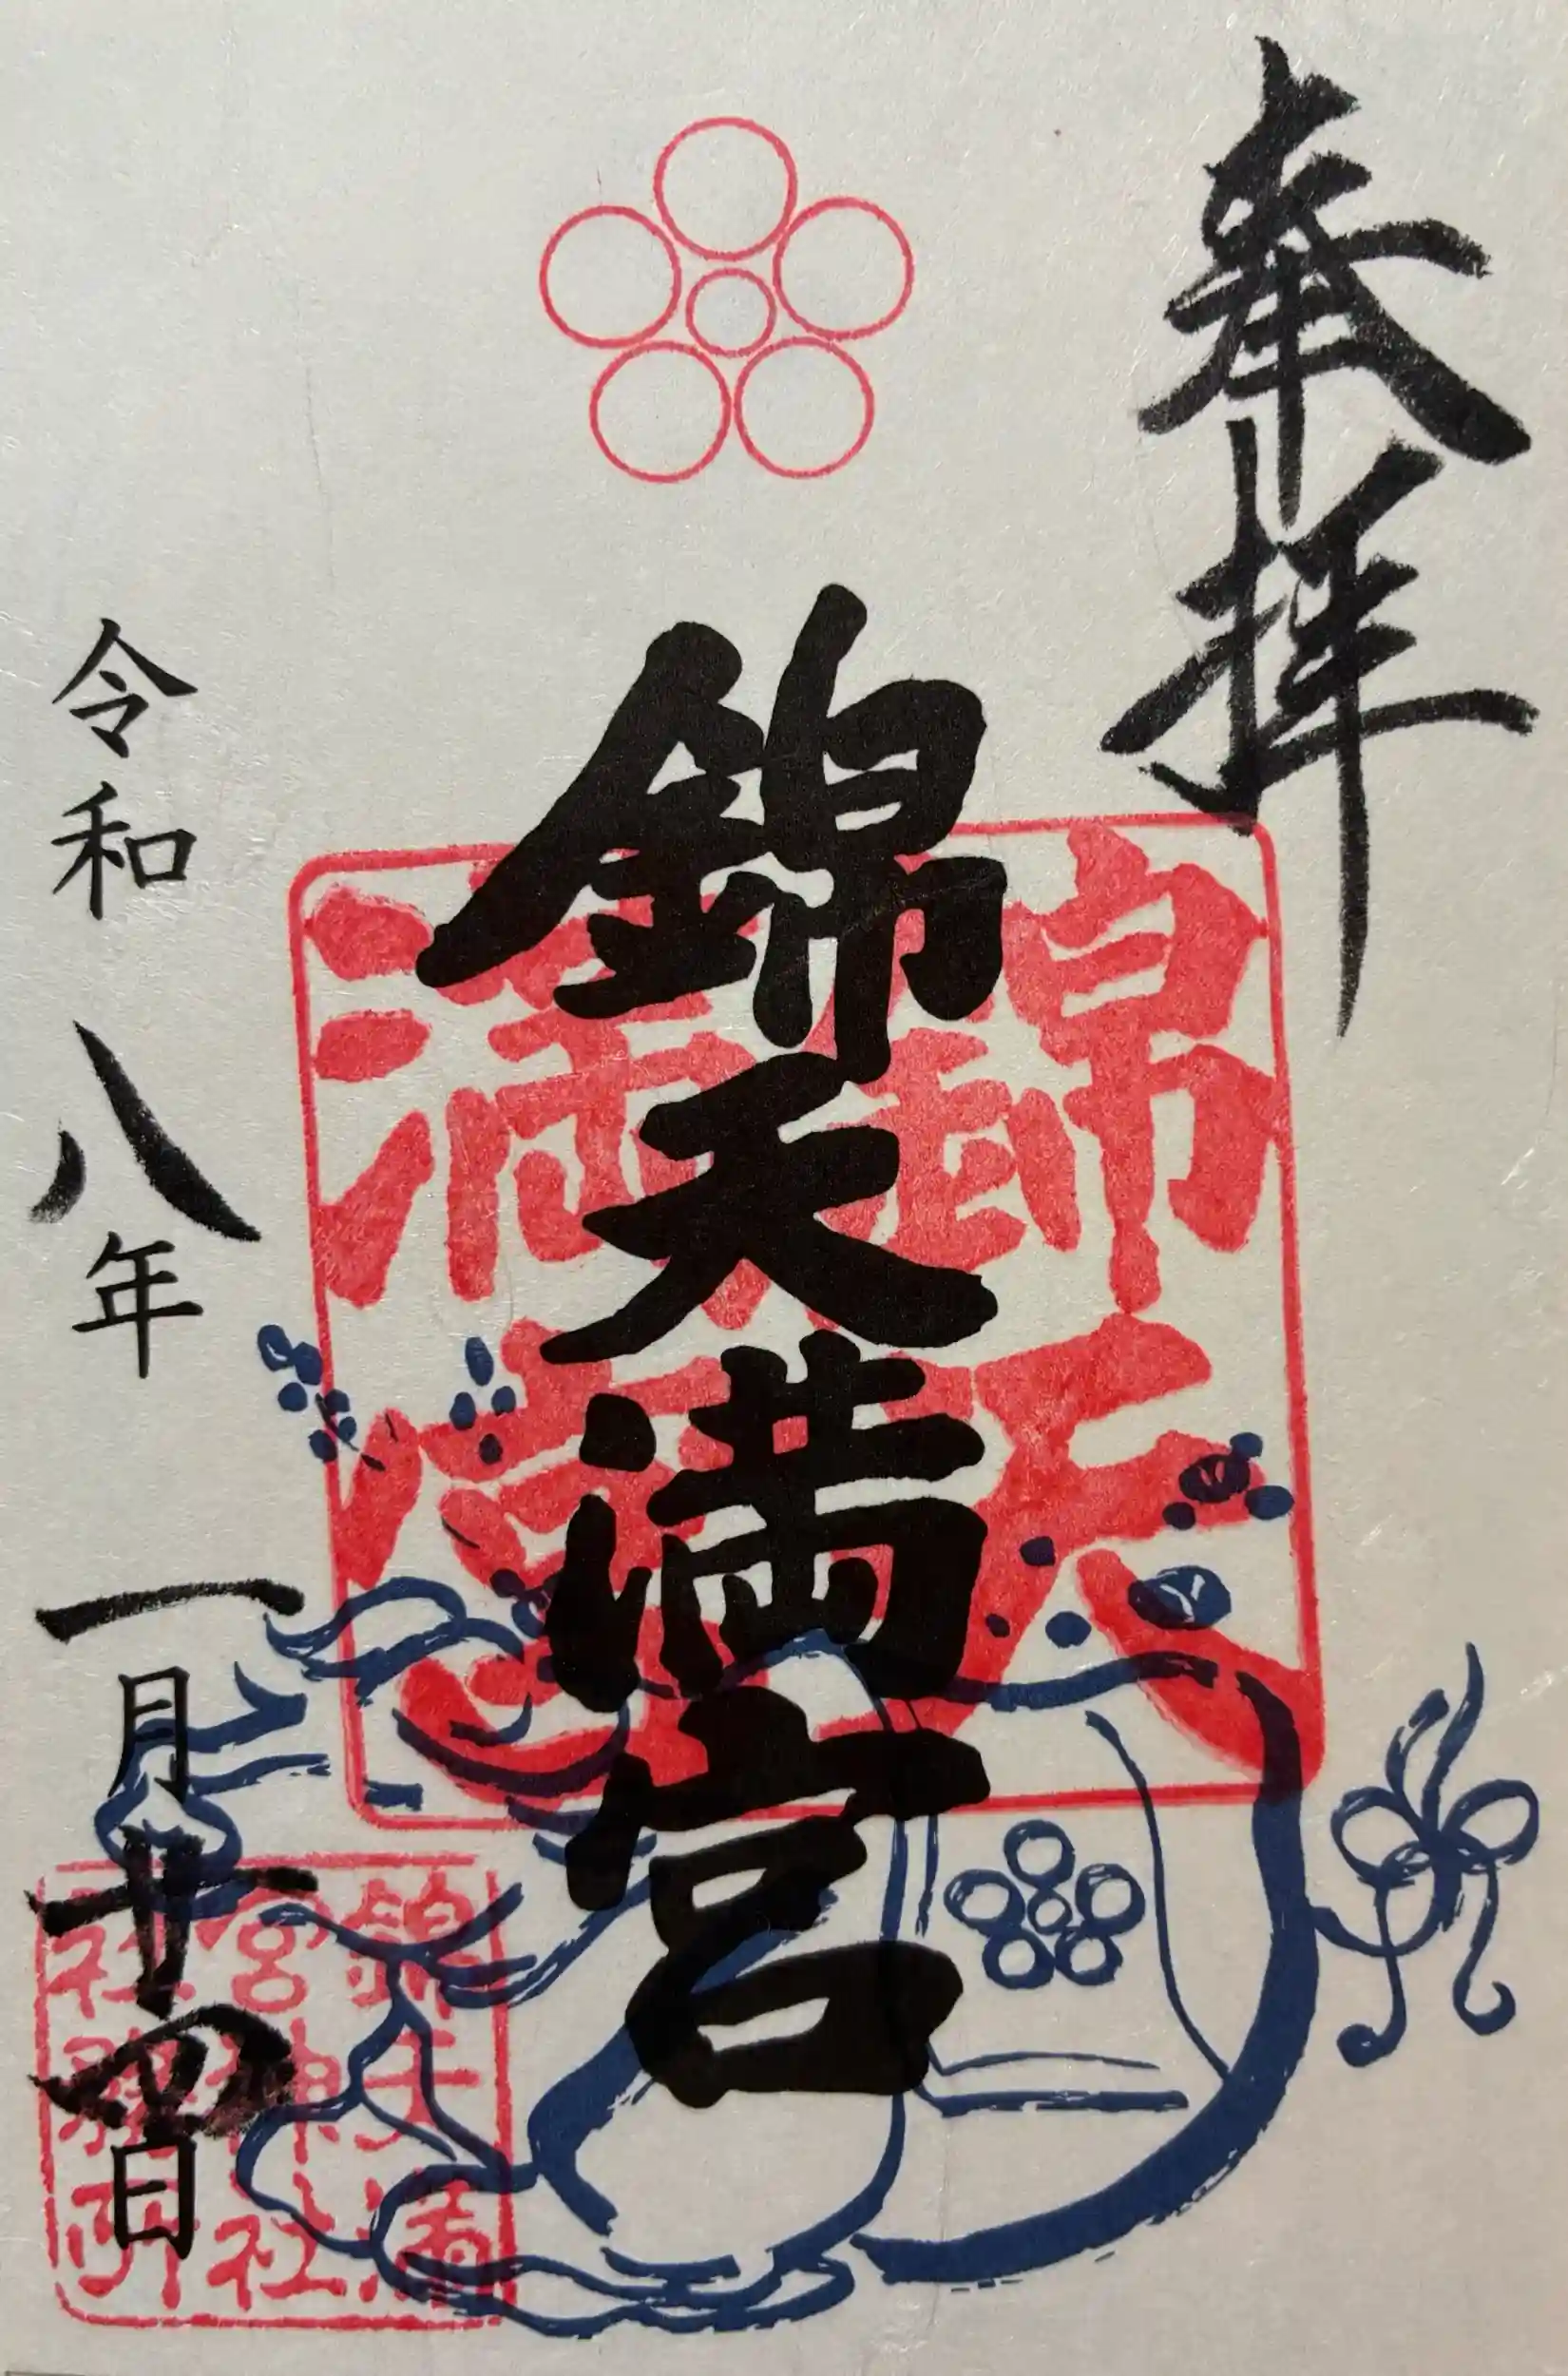 奉拝
錦天満宮
錦天
満宮
令和八年一月十四日
錦天満
宮神社
社務所